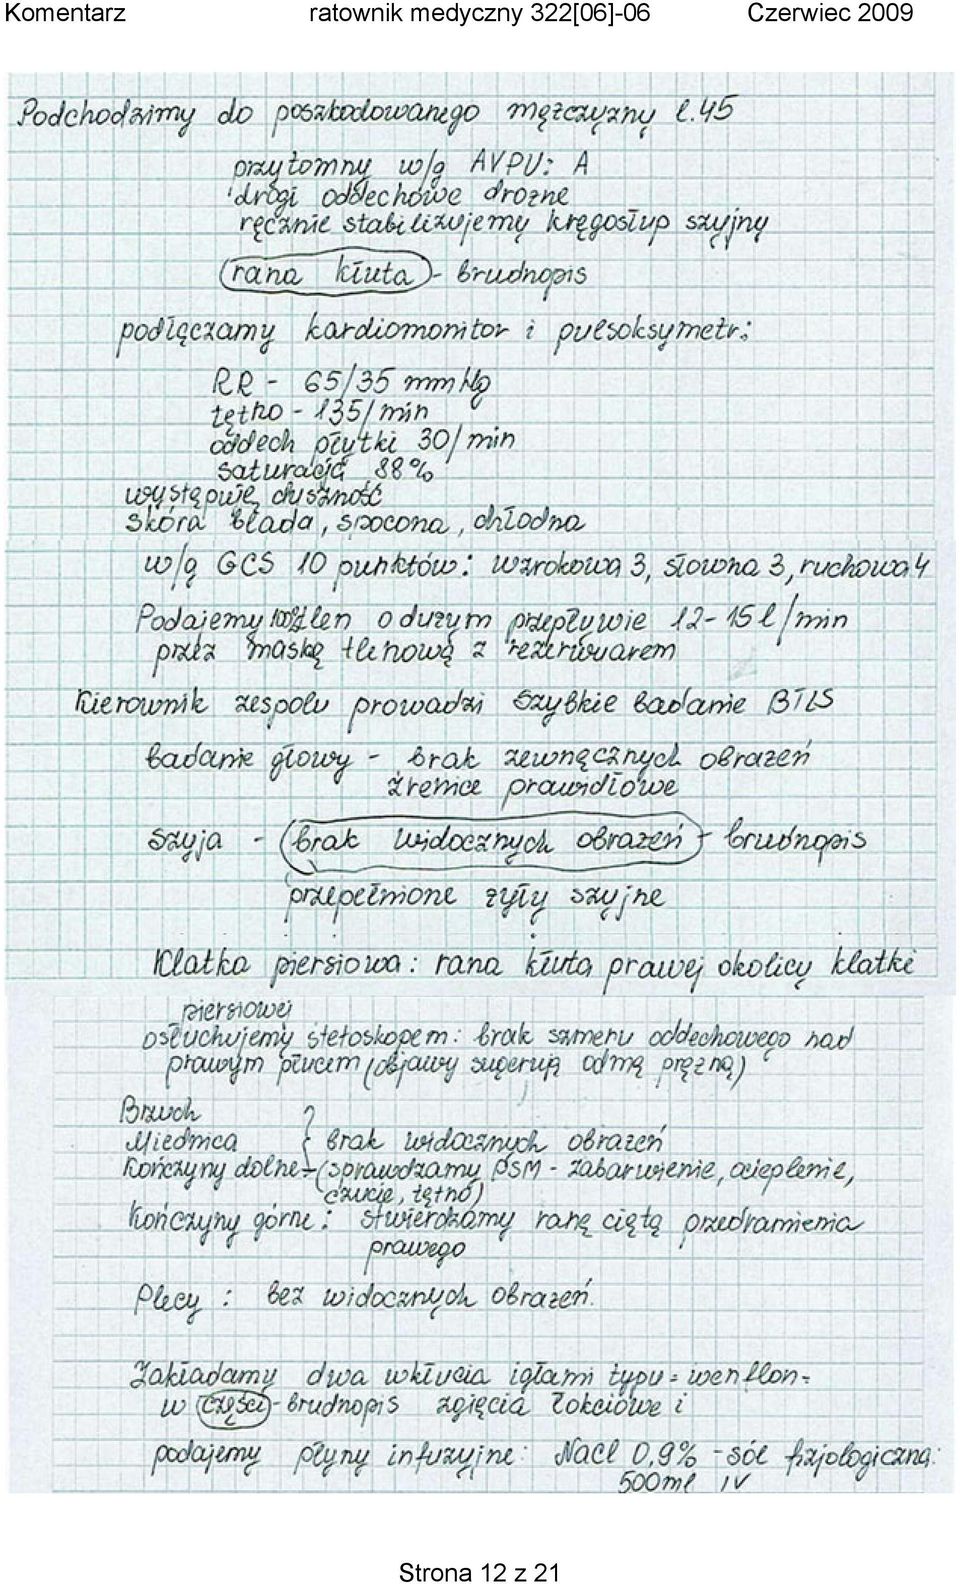 Komentarz ratownik medyczny 322[06]-06 Czerwiec 2009
Podchodzimy do poszkodowanego mężczyzny l.45
przytomny w/g AVPU: A
drogi oddechowe drożne
ręcznie stabilizujemy kręgosłup szyjny
(rana kłuta) - brudnopis
podłączamy kardiomonitor i pulsoksymetr:
RR - 65/35 mmHg
tętno - 135/min
oddech płytki 30/min
saturacja 88%
występuje duszność
skóra blada, spocona, chłodna
w/g GCS 10 punktów: wzrokowa 3, słowna 3, ruchowa 4
Podajemy 100% tlen o dużym przepływie 12-15 l/min
przez maskę tlenową z rezerwuarem
Kierownik zespołu prowadzi szybkie badanie BTLS
badanie głowy - brak zewnęcznych obrażeń
źrenice prawidłowe
szyja - (brak widocznych obrażeń) - brudnopis
przepełnione żyły szyjne
Klatka piersiowa: rana kłuta prawej okolicy klatki
piersiowej
osłuchujemy stetoskopem: brak szmeru oddechowego nad
prawym płucem (objawy sugerują odmę prężną)
Brzuch
Miednica } brak widocznych obrażeń
Kończyny dolne - (sprawdzamy PSM - zabarwienie, ocieplenie,
czucie, tętno)
Kończyny górne: stwierdzamy ranę ciętą przedramienia
prawego
Plecy: bez widocznych obrażeń.
Zakładamy dwa wkłucia igłami typu wenflon
w (części) - brudnopis zgięcia łokciowe i
podajemy płyny infuzyjne: NaCl 0,9% - sól fizjologiczna:
500ml IV
Strona 12 z 21